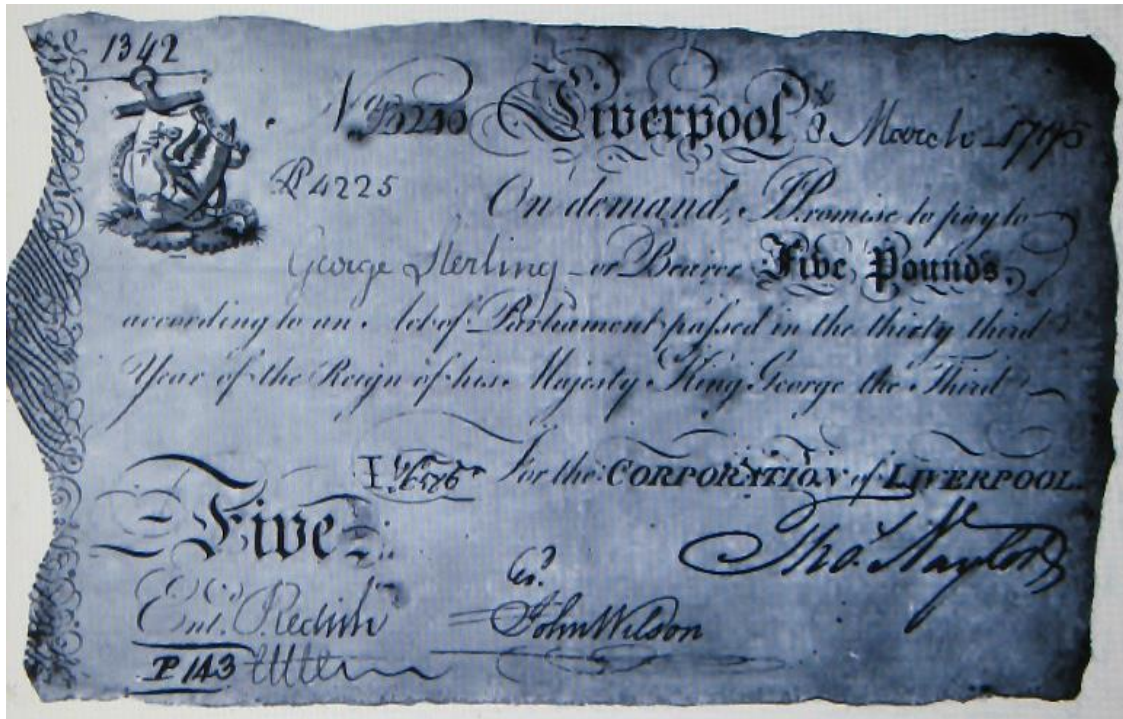 1342
Liverpool 8 March 1795
P4225
On demand, I Promise to pay to
George Sterling or Bearer Five Pounds.
according to an Act of Parliament passed in the thirty third
Year of the Reign of his Majesty King George the Third
For the CORPORATION of LIVERPOOL.
Five
Thos. Naylor
Ent. Redish
John Wilson
P 143